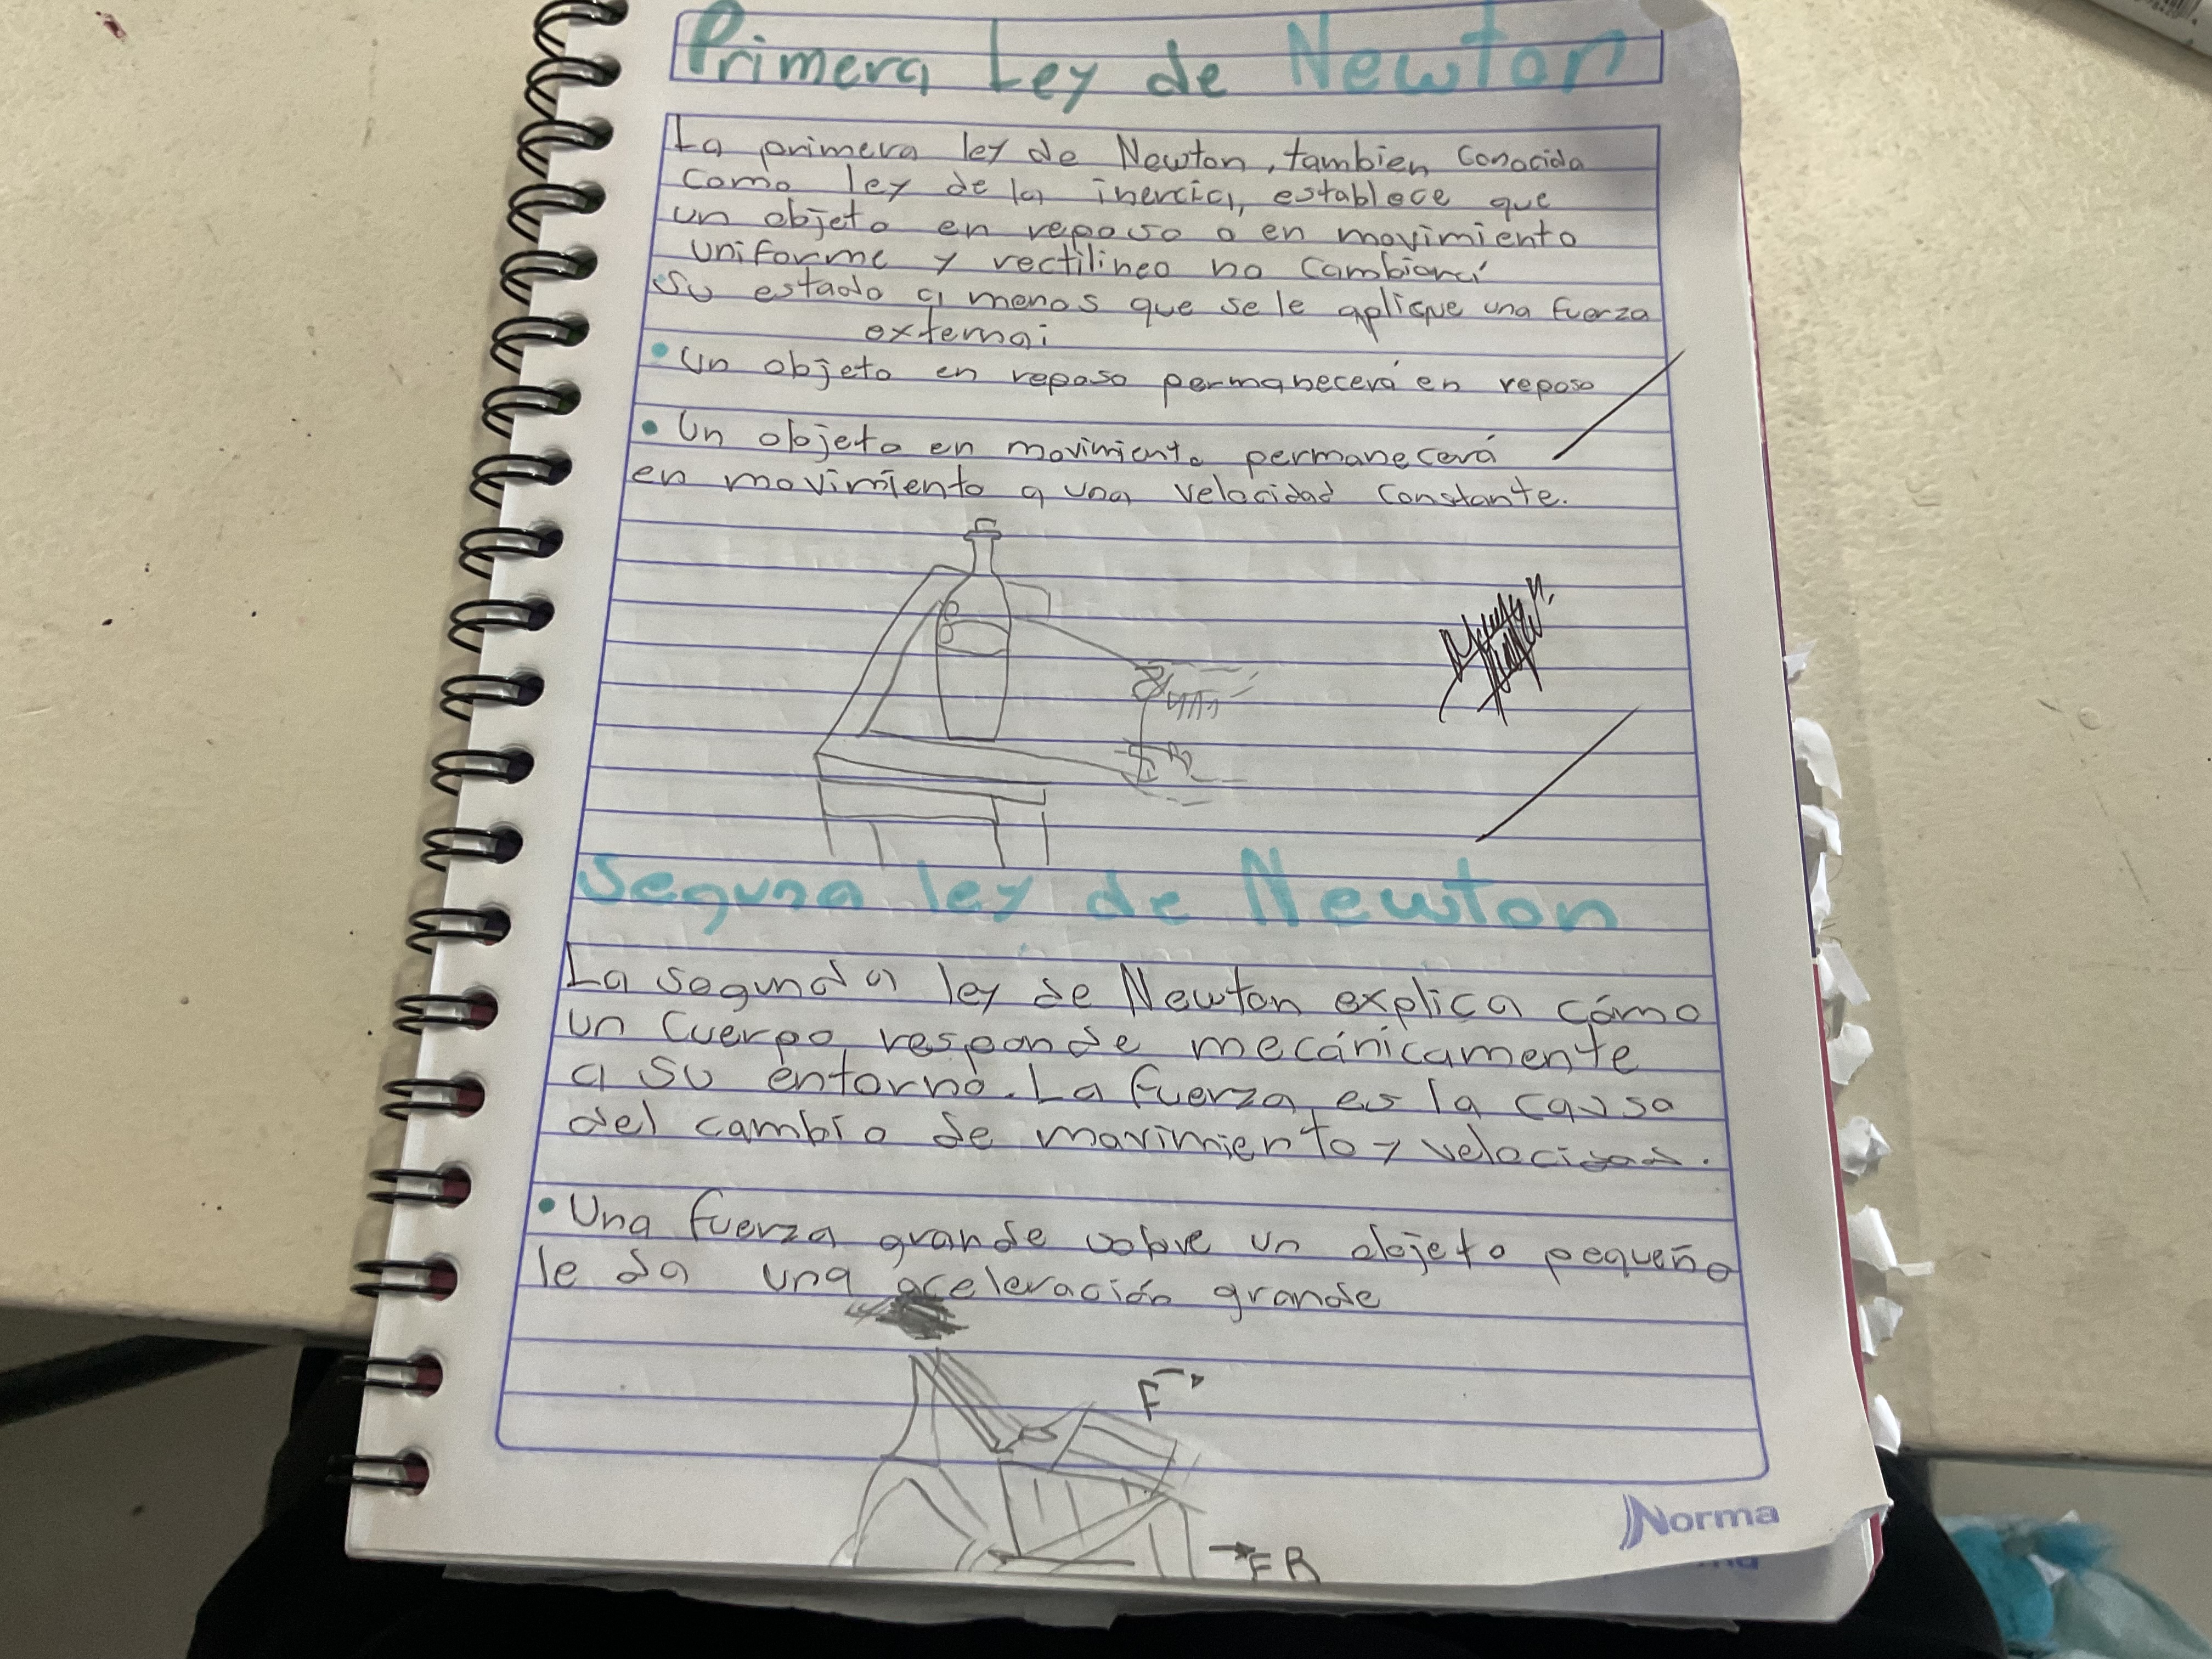 Primera Ley de Newton
La primera ley de Newton, tambien conocida
como ley de la inercia, establece que
un objeto en reposo o en movimiento
uniforme y rectilineo no cambiará
su estado a menos que se le aplique una fuerza
externa:
• Un objeto en reposo permanecerá en reposo
• Un objeto en movimiento permanecerá
en movimiento a una velocidad constante.
Segunda ley de Newton
La segunda ley de Newton explica cómo
un cuerpo responde mecánicamente
a su entorno. La fuerza es la causa
del cambio de movimiento y velocidad.
• Una fuerza grande sobre un objeto pequeño
le da una aceleración grande
F
FR
Norma